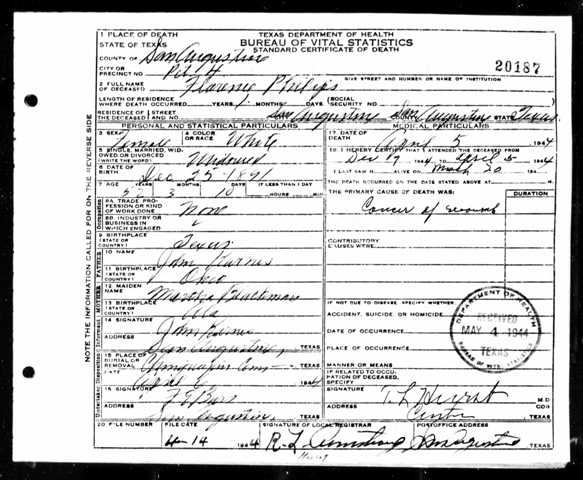 1 PLACE OF DEATH
STATE OF TEXAS
TEXAS DEPARTMENT OF HEALTH
BUREAU OF VITAL STATISTICS
STANDARD CERTIFICATE OF DEATH
COUNTY OF San Augustine
CITY OR PRECINCT NO. Pct 4
20187
GIVE STREET AND NUMBER OR NAME OF INSTITUTION
2 FULL NAME OF DECEASED Florence Philips
LENGTH OF RESIDENCE WHERE DEATH OCCURRED YEARS MONTHS DAYS SOCIAL SECURITY NO.
RESIDENCE OF THE DECEASED STREET AND NO. San Augustine CITY San Augustine STATE Texas
PERSONAL AND STATISTICAL PARTICULARS
MEDICAL PARTICULARS
3 SEX Female 4 COLOR OR RACE White
17 DATE OF DEATH April 5 1944
5 SINGLE, MARRIED, WIDOWED OR DIVORCED (WRITE THE WORD) Widowed
18 I HEREBY CERTIFY Dec 19 1944 TO April 5 1944
6 DATE OF BIRTH Dec 25 1891
I LAST SAW H ALIVE ON March 20 194
THE DEATH OCCURRED ON THE DATE STATED ABOVE AT M.
7 AGE 52 3 10
IF LESS THAN 1 DAY
HOURS
THE PRIMARY CAUSE OF DEATH WAS:
DURATION
8A. TRADE, PROFESSION OR KIND OF WORK DONE None
Cancer of
8B. INDUSTRY OR BUSINESS IN WHICH ENGAGED
9 BIRTHPLACE (STATE OR COUNTRY) Texas
CONTRIBUTORY CAUSES WERE:
10 NAME John
11 BIRTHPLACE (STATE OR COUNTRY) Ohio
12 MAIDEN NAME Blackman
13 BIRTHPLACE (STATE OR COUNTRY) Ala
IF NOT DUE TO DISEASE, SPECIFY WHETHER:
ACCIDENT, SUICIDE OR HOMICIDE
14 SIGNATURE John
DATE OF OCCURRENCE
ADDRESS San Augustine TEXAS
PLACE OF OCCURRENCE
15 PLACE OF BURIAL OR REMOVAL
MANNER OR MEANS
DATE 6 1944
IF RELATED TO OCCUPATION OF DECEASED, SPECIFY
16 SIGNATURE
SIGNATURE T. L. Hurst M.D.
ADDRESS San Augustine TEXAS
ADDRESS Center TEXAS
20 FILE NUMBER FILE DATE SIGNATURE OF LOCAL REGISTRAR POSTOFFICE ADDRESS
4-14 1944 R. L. Armstrong San Augustine TEXAS
DEPARTMENT OF HEALTH
RECEIVED
MAY 4 1944
TEXAS
BUREAU OF VITAL STATISTICS
NOTE THE INFORMATION CALLED FOR ON THE REVERSE SIDE